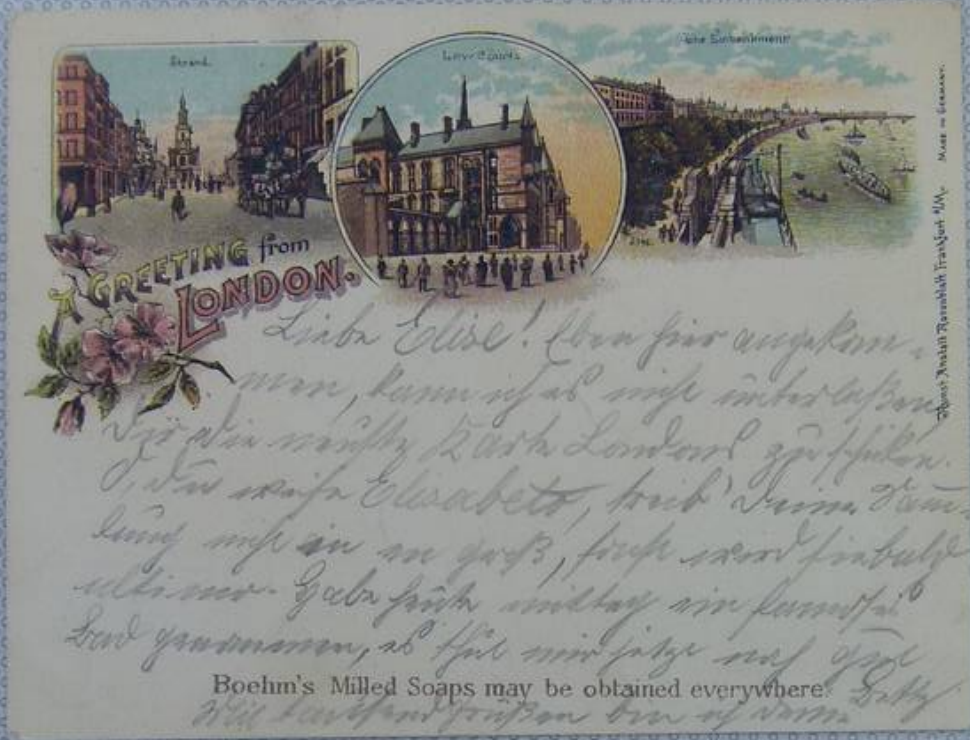 Strand.
Law Courts
The Embankment
MADE IN GERMANY.
Kunst-Anstalt Rosenblatt Frankfurt a/M.
A GREETING from
LONDON.
Liebe Elise! Eben hier angekom-
men, kann ich es nicht unterlaßen
Dir die neuste Karte Londons zu schicken.
O, du weise Elisabeth, treib' Deine Samm-
lung nicht an en groß, sonst wird sie bald
ultimo. Habe heute mittag ein famoses
Bad genommen, es thut mir jetzt noch gut
Boehm's Milled Soaps may be obtained everywhere.
Mit tausend Grüßen bin ich Deine
Betty